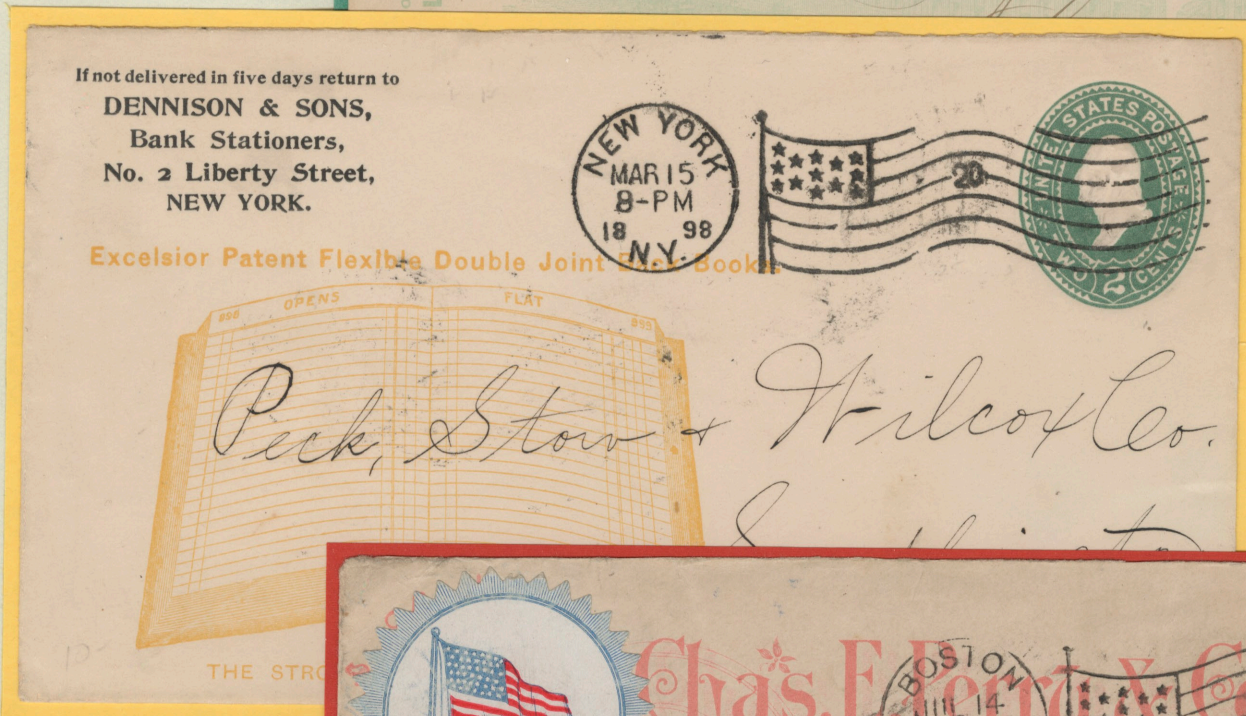 If not delivered in five days return to
DENNISON & SONS,
Bank Stationers,
No. 2 Liberty Street,
NEW YORK.
NEW YORK
MAR 15
8-PM
18 98
N.Y.
20
UNITED STATES POSTAGE
TWO 2 CENTS
Excelsior Patent Flexible Double Joint Back Books.
OPENS FLAT
Peck, Stow & Wilcox Co.
THE STRO
Chas. F. Perry & Co
BOSTON
JUL 14